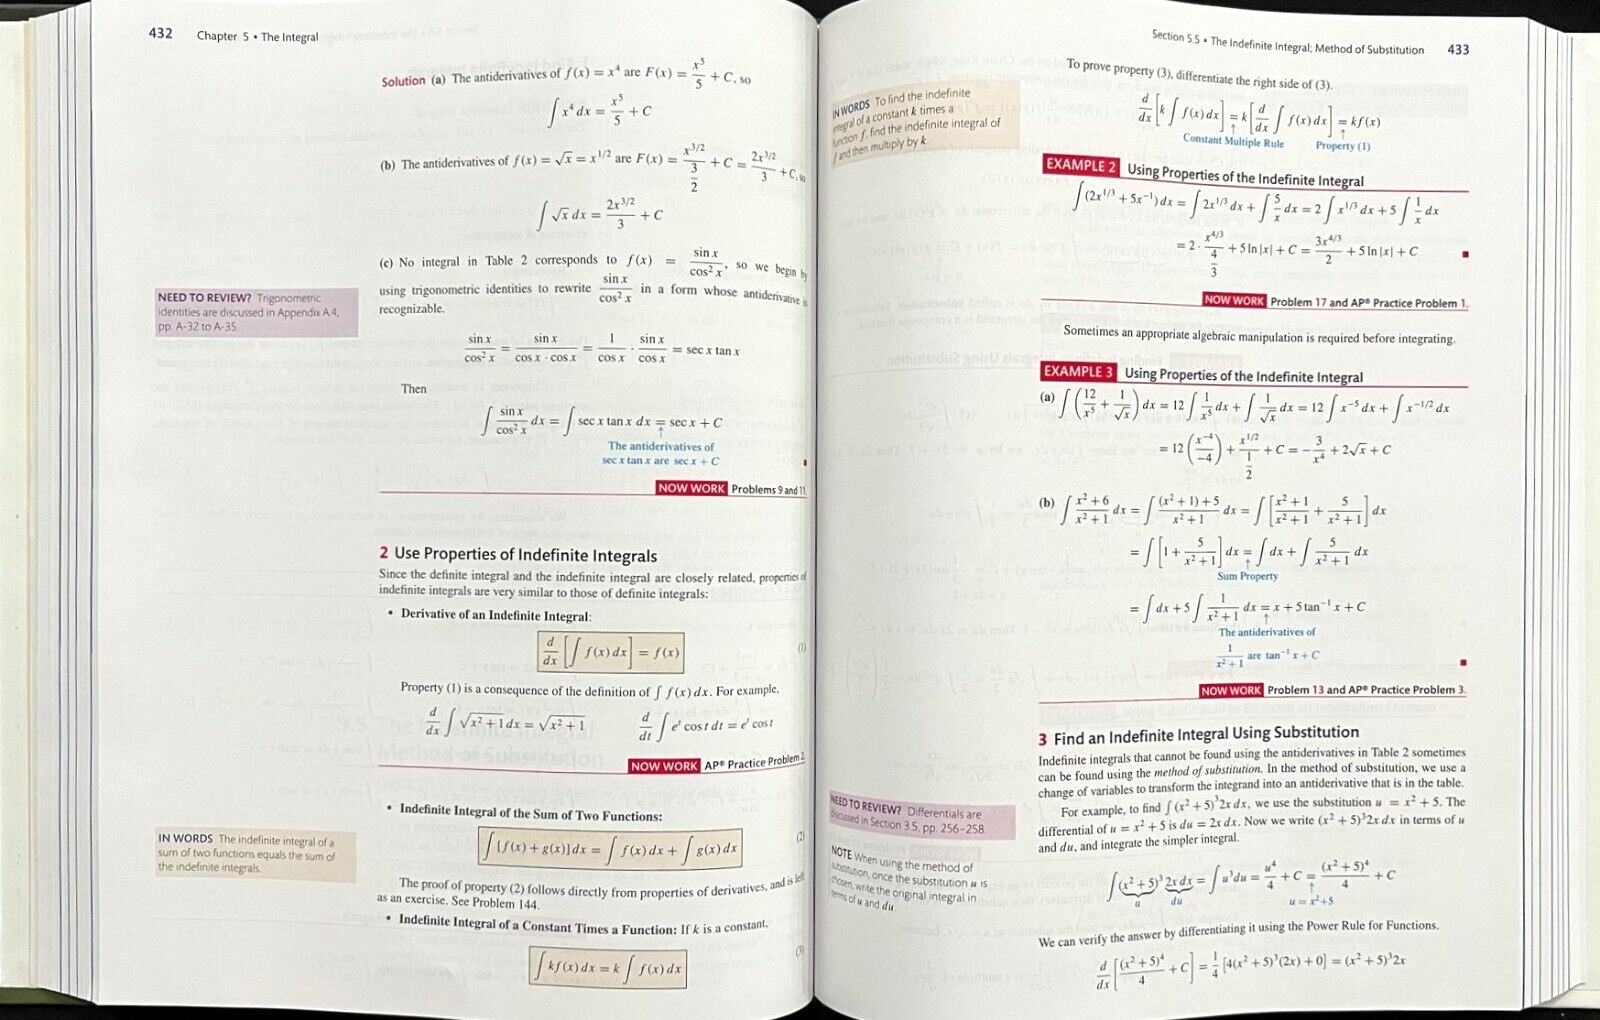 432 Chapter 5 • The Integral
Solution (a) The antiderivatives of f(x) = x⁴ are F(x) = x⁵/5 + C, so
∫ x⁴ dx = x⁵/5 + C
(b) The antiderivatives of f(x) = √x = x^(1/2) are F(x) = x^(3/2)/(3/2) + C = 2x^(3/2)/3 + C, so
∫ √x dx = 2x^(3/2)/3 + C
(c) No integral in Table 2 corresponds to f(x) = sin x/cos² x, so we begin by
using trigonometric identities to rewrite sin x/cos² x in a form whose antiderivative is
recognizable.
NEED TO REVIEW? Trigonometric
identities are discussed in Appendix A.4,
pp. A-32 to A-35.
sin x/cos² x = sin x/(cos x · cos x) = 1/cos x · sin x/cos x = sec x tan x
Then
∫ sin x/cos² x dx = ∫ sec x tan x dx = sec x + C
↑
The antiderivatives of
sec x tan x are sec x + C
NOW WORK Problems 9 and 11.
2 Use Properties of Indefinite Integrals
Since the definite integral and the indefinite integral are closely related, properties of
indefinite integrals are very similar to those of definite integrals:
• Derivative of an Indefinite Integral:
d/dx [∫ f(x) dx] = f(x) (1)
Property (1) is a consequence of the definition of ∫ f(x) dx. For example,
d/dx ∫ √(x² + 1) dx = √(x² + 1) d/dt ∫ eᵗ cos t dt = eᵗ cos t
NOW WORK AP® Practice Problem 2.
• Indefinite Integral of the Sum of Two Functions:
∫ [f(x) + g(x)] dx = ∫ f(x) dx + ∫ g(x) dx (2)
IN WORDS The indefinite integral of a
sum of two functions equals the sum of
the indefinite integrals.
The proof of property (2) follows directly from properties of derivatives, and is left
as an exercise. See Problem 144.
• Indefinite Integral of a Constant Times a Function: If k is a constant,
∫ kf(x) dx = k ∫ f(x) dx (3)
Section 5.5 • The Indefinite Integral; Method of Substitution 433
To prove property (3), differentiate the right side of (3).
IN WORDS To find the indefinite
integral of a constant k times a
function f, find the indefinite integral of
f and then multiply by k.
d/dx [k ∫ f(x) dx] = k [d/dx ∫ f(x) dx] = kf(x)
↑ ↑
Constant Multiple Rule Property (1)
EXAMPLE 2 Using Properties of the Indefinite Integral
∫ (2x^(1/3) + 5x⁻¹) dx = ∫ 2x^(1/3) dx + ∫ 5/x dx = 2 ∫ x^(1/3) dx + 5 ∫ 1/x dx
= 2 · x^(4/3)/(4/3) + 5 ln |x| + C = 3x^(4/3)/2 + 5 ln |x| + C
NOW WORK Problem 17 and AP® Practice Problem 1.
Sometimes an appropriate algebraic manipulation is required before integrating.
EXAMPLE 3 Using Properties of the Indefinite Integral
(a) ∫ (12/x⁵ + 1/√x) dx = 12 ∫ 1/x⁵ dx + ∫ 1/√x dx = 12 ∫ x⁻⁵ dx + ∫ x^(−1/2) dx
= 12 (x⁻⁴/−4) + x^(1/2)/(1/2) + C = −3/x⁴ + 2√x + C
(b) ∫ (x² + 6)/(x² + 1) dx = ∫ ((x² + 1) + 5)/(x² + 1) dx = ∫ [(x² + 1)/(x² + 1) + 5/(x² + 1)] dx
= ∫ [1 + 5/(x² + 1)] dx = ∫ dx + ∫ 5/(x² + 1) dx
↑
Sum Property
= ∫ dx + 5 ∫ 1/(x² + 1) dx = x + 5 tan⁻¹ x + C
↑
The antiderivatives of
1/(x² + 1) are tan⁻¹ x + C
NOW WORK Problem 13 and AP® Practice Problem 3.
3 Find an Indefinite Integral Using Substitution
Indefinite integrals that cannot be found using the antiderivatives in Table 2 sometimes
can be found using the method of substitution. In the method of substitution, we use a
change of variables to transform the integrand into an antiderivative that is in the table.
For example, to find ∫ (x² + 5)³ 2x dx, we use the substitution u = x² + 5. The
differential of u = x² + 5 is du = 2x dx. Now we write (x² + 5)³ 2x dx in terms of u
and du, and integrate the simpler integral.
NEED TO REVIEW? Differentials are
discussed in Section 3.5, pp. 256–258.
NOTE When using the method of
substitution, once the substitution u is
chosen, write the original integral in
terms of u and du.
∫ (x² + 5)³ 2x dx = ∫ u³ du = u⁴/4 + C = (x² + 5)⁴/4 + C
u du ↑
u = x² + 5
We can verify the answer by differentiating it using the Power Rule for Functions.
d/dx [(x² + 5)⁴/4 + C] = 1/4 [4(x² + 5)³(2x) + 0] = (x² + 5)³ 2x